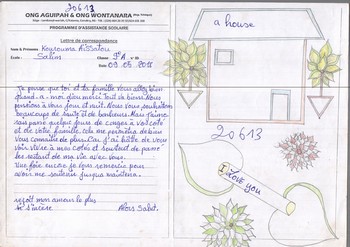 20613
ONG AGUIPAH & ONG WONTANARA
PROGRAMME D'ASSISTANCE SCOLAIRE
Lettre de correspondance
Nom & Prénoms : Kourouma Aissatou
Ecole : Salim Classe : 5e A N°
Date : 09.05.2018
Je pense que toi et ta famille vous allez bien
quand-à-moi dieu merci tout va bien. Nous
pensions à vous jour et nuit. Nous vous souhaitons
beaucoup de santé et de bonheur. Mais j'aime-
rais passé quelque jours de congés à
et de votre famille. Cela me permettra de bien
vous connaître de plus. J'ai hâte de vous
voir vivre à mes cotés et surtout de parta-
ger la suite de ma vie avec vous.
Une fois encore je vous remercie pour
avoir me soutenir jusqu'à maintenant.
reçoit mon amour le plus
sincère
Salut.
a house
20613
I love you